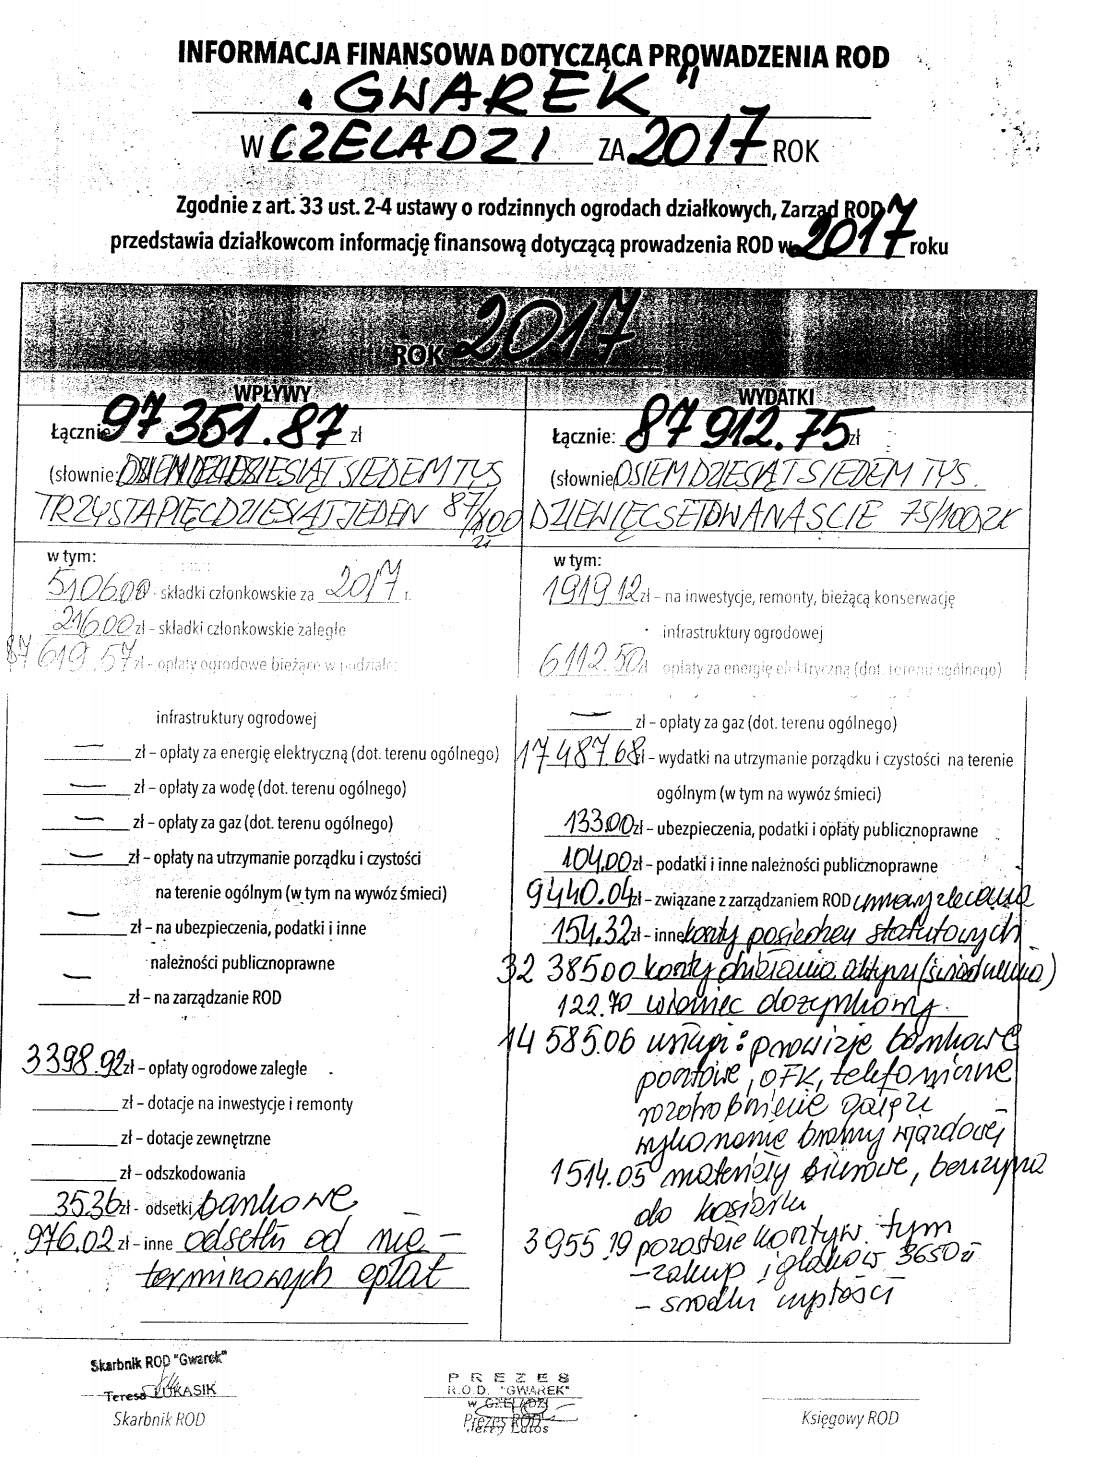 INFORMACJA FINANSOWA DOTYCZĄCA PROWADZENIA ROD
„GWAREK"
W CZELADZI ZA 2017 ROK
Zgodnie z art. 33 ust. 2-4 ustawy o rodzinnych ogrodach działkowych, Zarząd ROD
przedstawia działkowcom informację finansową dotyczącą prowadzenia ROD w 2017 roku
ROK 2017
WPŁYWY
Łącznie 97 351.87 zł
(słownie: DZIEWIĘĆDZIESIĄT SIEDEM TYS
TRZYSTA PIĘĆDZIESIĄT JEDEN 87/100 zł
w tym:
5106.00 - składki członkowskie za 2017 r.
216.00 zł – składki członkowskie zaległe
87 619.57 zł – opłaty ogrodowe bieżące w podziale:
infrastruktury ogrodowej
— zł – opłaty za energię elektryczną (dot. terenu ogólnego)
— zł – opłaty za wodę (dot. terenu ogólnego)
— zł – opłaty za gaz (dot. terenu ogólnego)
— zł – opłaty na utrzymanie porządku i czystości
na terenie ogólnym (w tym na wywóz śmieci)
— zł – na ubezpieczenia, podatki i inne
należności publicznoprawne
— zł – na zarządzanie ROD
3398.92 zł – opłaty ogrodowe zaległe
zł – dotacje na inwestycje i remonty
zł – dotacje zewnętrzne
zł – odszkodowania
35.36 zł - odsetki bankowe
976.02 zł – inne odsetki od nie-
terminowych opłat
WYDATKI
Łącznie: 87 912.75 zł
(słownie OSIEMDZIESIĄT SIEDEM TYS.
DZIEWIĘĆSET DWANAŚCIE 75/100 ZŁ
w tym:
1919.12 zł – na inwestycje, remonty, bieżącą konserwację
infrastruktury ogrodowej
6112.50 zł opłaty za energię elektryczną (dot. terenu ogólnego)
— zł – opłaty za gaz (dot. terenu ogólnego)
17 487.68 zł – wydatki na utrzymanie porządku i czystości na terenie
ogólnym (w tym na wywóz śmieci)
133.00 zł – ubezpieczenia, podatki i opłaty publicznoprawne
104.00 zł – podatki i inne należności publicznoprawne
9440.04 zł – związane z zarządzaniem ROD umowy zlecenia
154.32 zł – inne koszty posiedzeń statutowych
32 385.00 koszty działania aktywu (świadczenia)
122.70 wieniec dożynkowy
14 585.06 usługi: prowizje bankowe
pocztowe, OFK, telefoniczne
rozdrobnienie gałęzi
wykonanie bramy wjazdowej
1514.05 materiały biurowe, benzyna
do kosiarki
3955.19 pozostałe koszty w tym
– zakup iglaków 3650 zł
– środki czystości
Skarbnik ROD "Gwarek"
Teresa ŁUKASIK
Skarbnik ROD
PREZES
R.O.D. "GWAREK"
w CZELADZI
Prezes ROD
Księgowy ROD